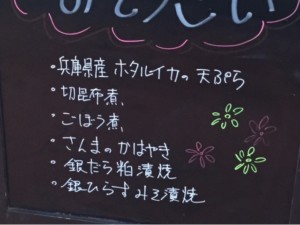 ・兵庫県産 ホタルイカの天ぷら
・切昆布煮
・ごぼう煮
・さんまのかばやき
・銀だら粕漬焼
・銀ひらすみそ漬焼